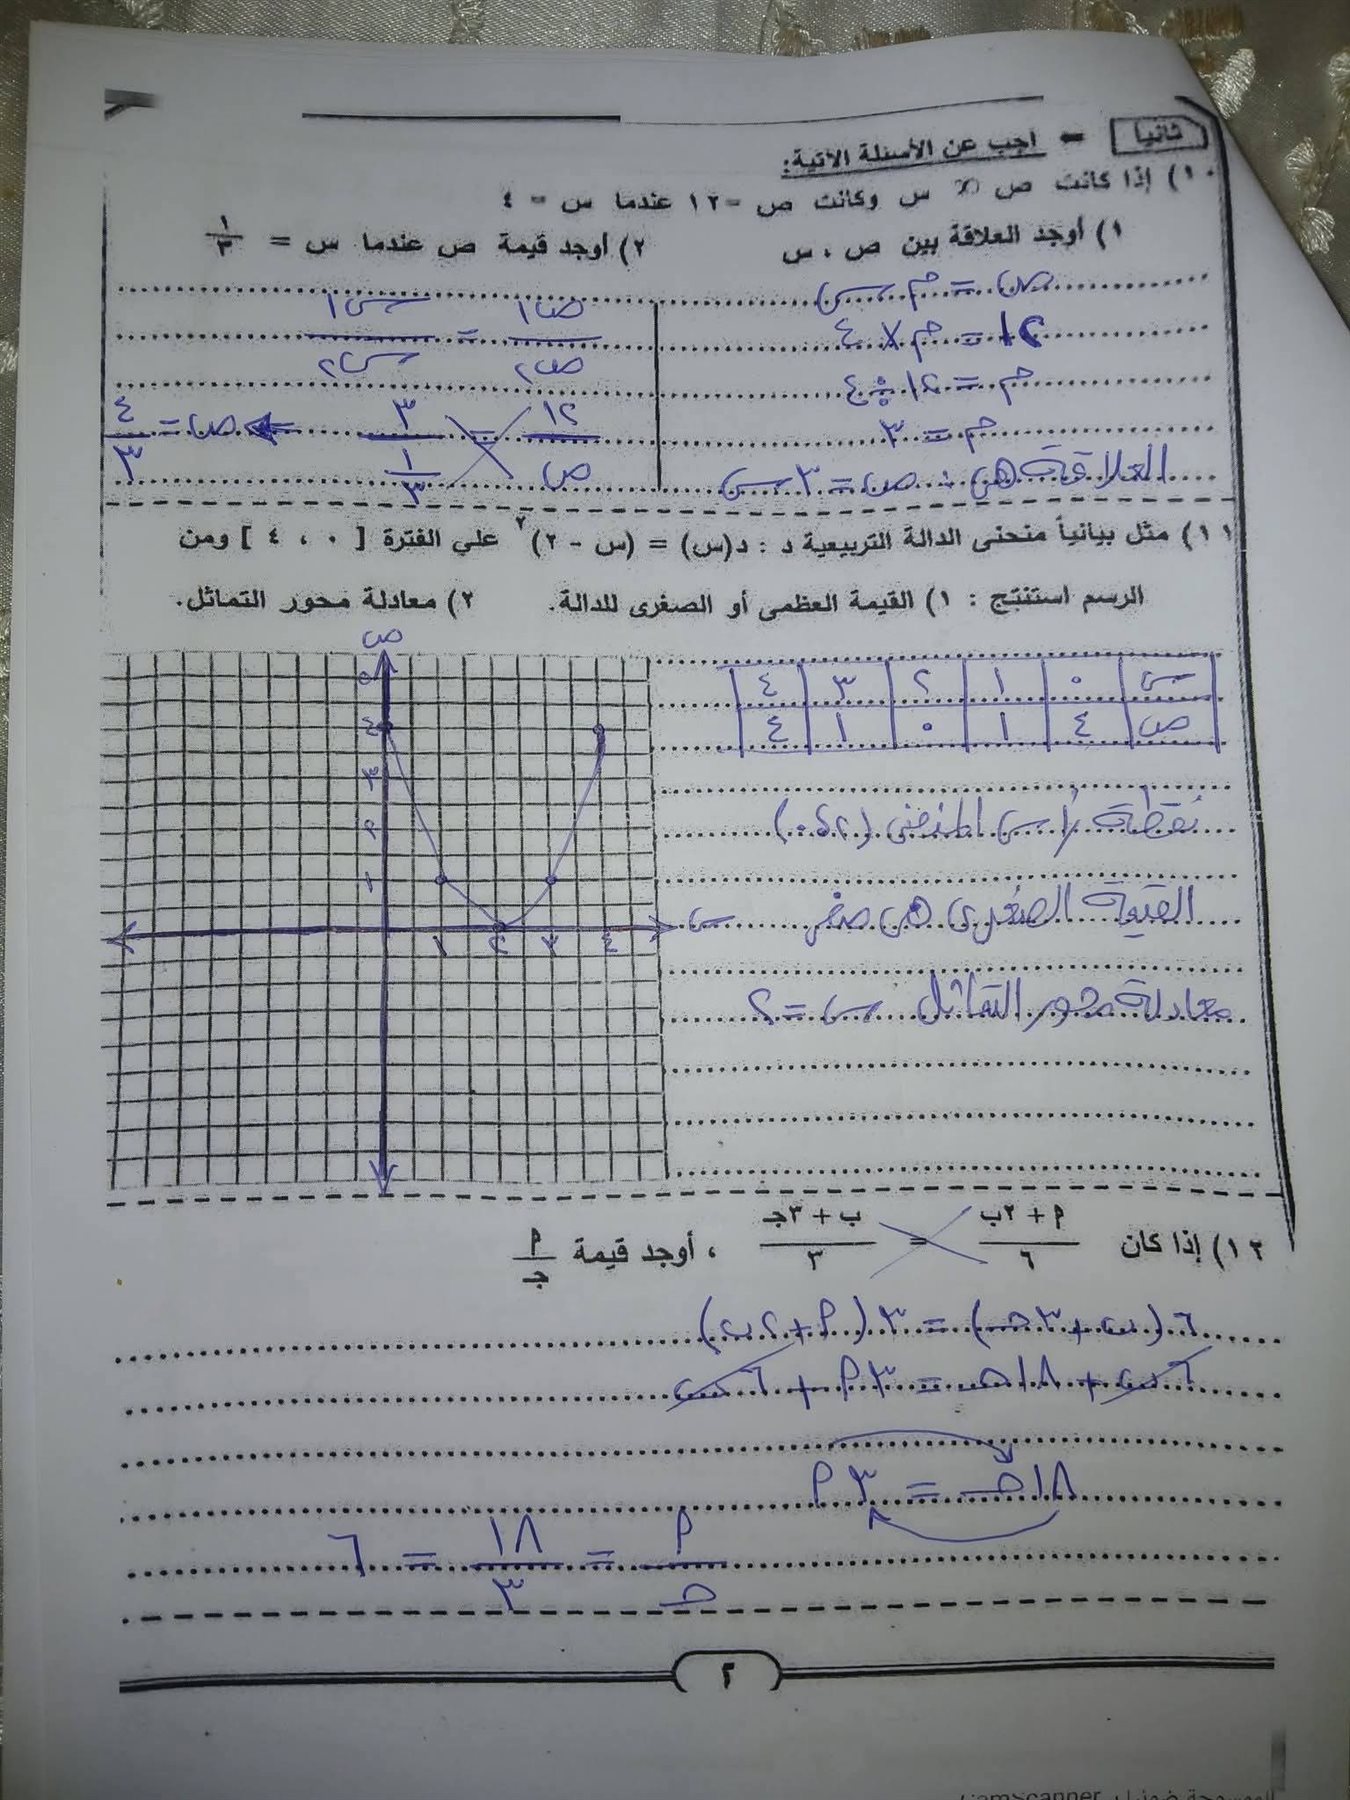 ثانيا ← أجب عن الأسئلة الآتية:
١٠) إذا كانت ص ∝ س وكانت ص = ١٢ عندما س = ٤
١) أوجد العلاقة بين ص ، س ٢) أوجد قيمة ص عندما س = ١/٣
ص = م س
١٢ = م × ٤
م = ١٢ ÷ ٤
م = ٣
العلاقة هى: ص = ٣ س
ص١/ص٢ = س١/س٢
١٢/ص = ٣/(١/٣) ← ص = ٤/٣
١١) مثل بيانياً منحنى الدالة التربيعية د : د(س) = (س - ٢)٢ علي الفترة [ ٠ ، ٤ ] ومن
الرسم استنتج : ١) القيمة العظمى أو الصغرى للدالة. ٢) معادلة محور التماثل.
س ٠ ١ ٢ ٣ ٤
ص ٤ ١ ٠ ١ ٤
نقطة رأس المنحنى (٢،٠)
القيمة الصغرى هى صفر
معادلة محور التماثل س = ٢
ص
٥
٤
٣
٢
١
س
١ ٢ ٣ ٤
١٢) إذا كان (م + ٢ب)/٦ = (ب + ٣جـ)/٣ ، أوجد قيمة م/جـ
٦(ب + ٣جـ) = ٣(م + ٢ب)
٦ب + ١٨جـ = ٣م + ٦ب
١٨جـ = ٣م
م/جـ = ١٨/٣ = ٦
٢